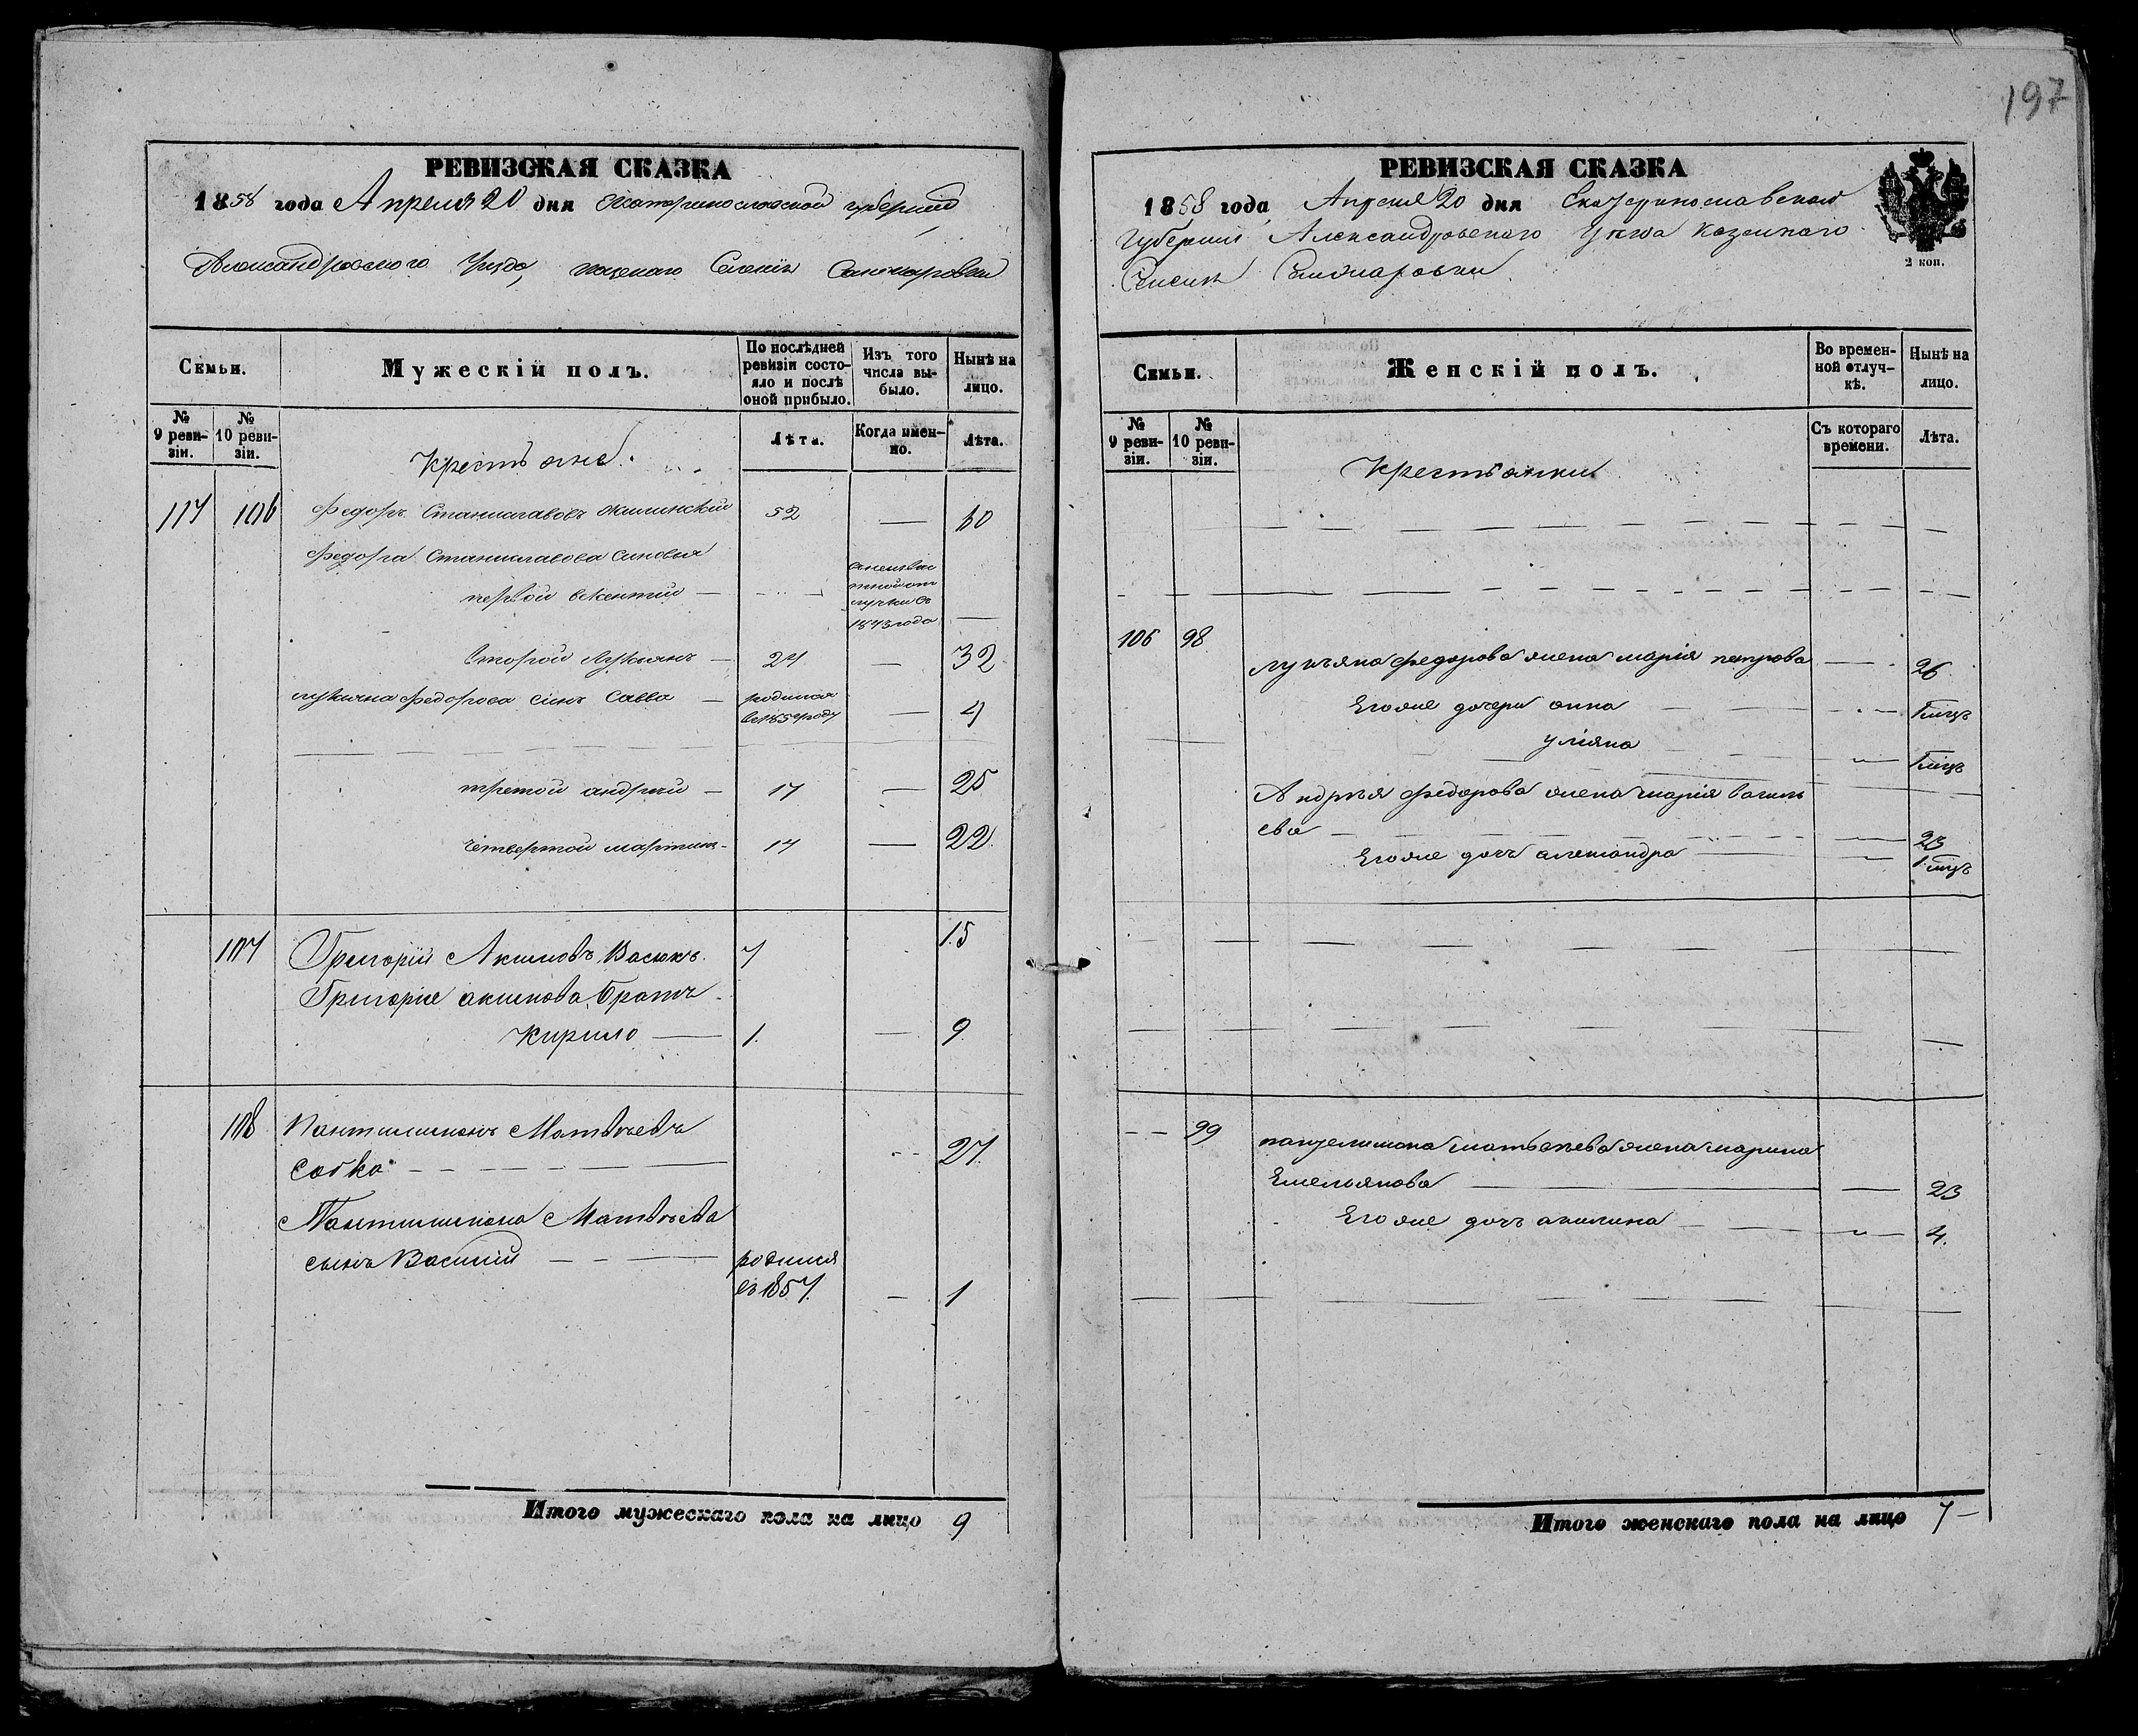 197
РЕВИЗСКАЯ СКАЗКА
1858 года Апреля 20 дня Екатеринославской губернии
Александровского Уезда, казенаго Селенія Санжаровки
Семьи.
Мужескій полъ.
По послѣдней ревизіи состояло и послѣ оной прибыло.
Изъ того числа выбыло.
Нынѣ на лицо.
№ 9 ревизіи.
№ 10 ревизіи.
Крестьяне.
Лѣта.
Когда именно.
Лѣта.
117 106 Федоръ Станиславовъ 52 — 60
Федора Станиславова синовья
первой — 1843 года —
второй Лукьянъ — 24 — 32
лукьяна федорова синъ Савва — родился в 1854 году — 4
третой андрѣй — 17 — 25
четвертой мартинъ — 14 — 22
107 Григорій Акимовъ Васюкъ. 7 15
Григорія акимова Братъ
Кирило — 1. — 9
108 Пантилимонъ Матвѣевъ
собко — 27.
Пантилимона Матвѣева
сынъ Василій — родился въ 1857. — 1
Итого мужескаго пола на лицо 9
РЕВИЗСКАЯ СКАЗКА
1858 года Апреля 20 дня Екатеринославской
Губерніи Александровскаго Уѣзда Казеннаго
Селенія Санжаровки
2 коп.
Семьи.
Женскій полъ.
Во временной отлучкѣ.
Нынѣ на лицо.
№ 9 ревизіи.
№ 10 ревизіи.
Крестьянки
Съ котораго времени.
Лѣта.
106 98
лукъяна федорова жена марія петрова — 26
Егоже дочери анна — 1 мцъ
уліяна — 1 мцъ
Андрѣя федорова жена марія василь
ева — 23
Егоже дочъ александра — 1 мцъ
99 панделимона матвѣева жена марина
Емельянова — 23
Егоже дочъ акилина — 4.
Итого женскаго пола на лицо 7 —